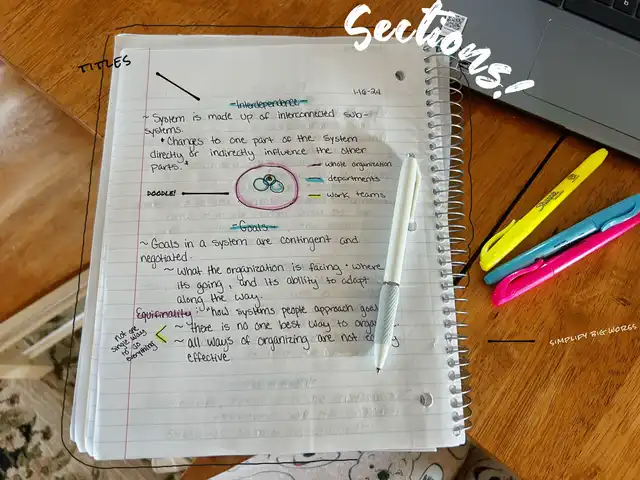 Sections!
TITLES
1-16-24
Interdependence
~ System is made up of interconnected sub-
systems.
* Changes to one part of the system
directly or indirectly influence the other
parts.*
whole organization
departments
work teams
DOODLE!
Goals
~ Goals in a system are contingent and
negotiated.
~ What the organization is facing, where
its going, and its ability to adapt
along the way.
Equifinality: how systems people approach goal
~ there is no one best way to
~ all ways of organizing are not
effective
not one
single way
to do
everything
SIMPLIFY BIG WORDS